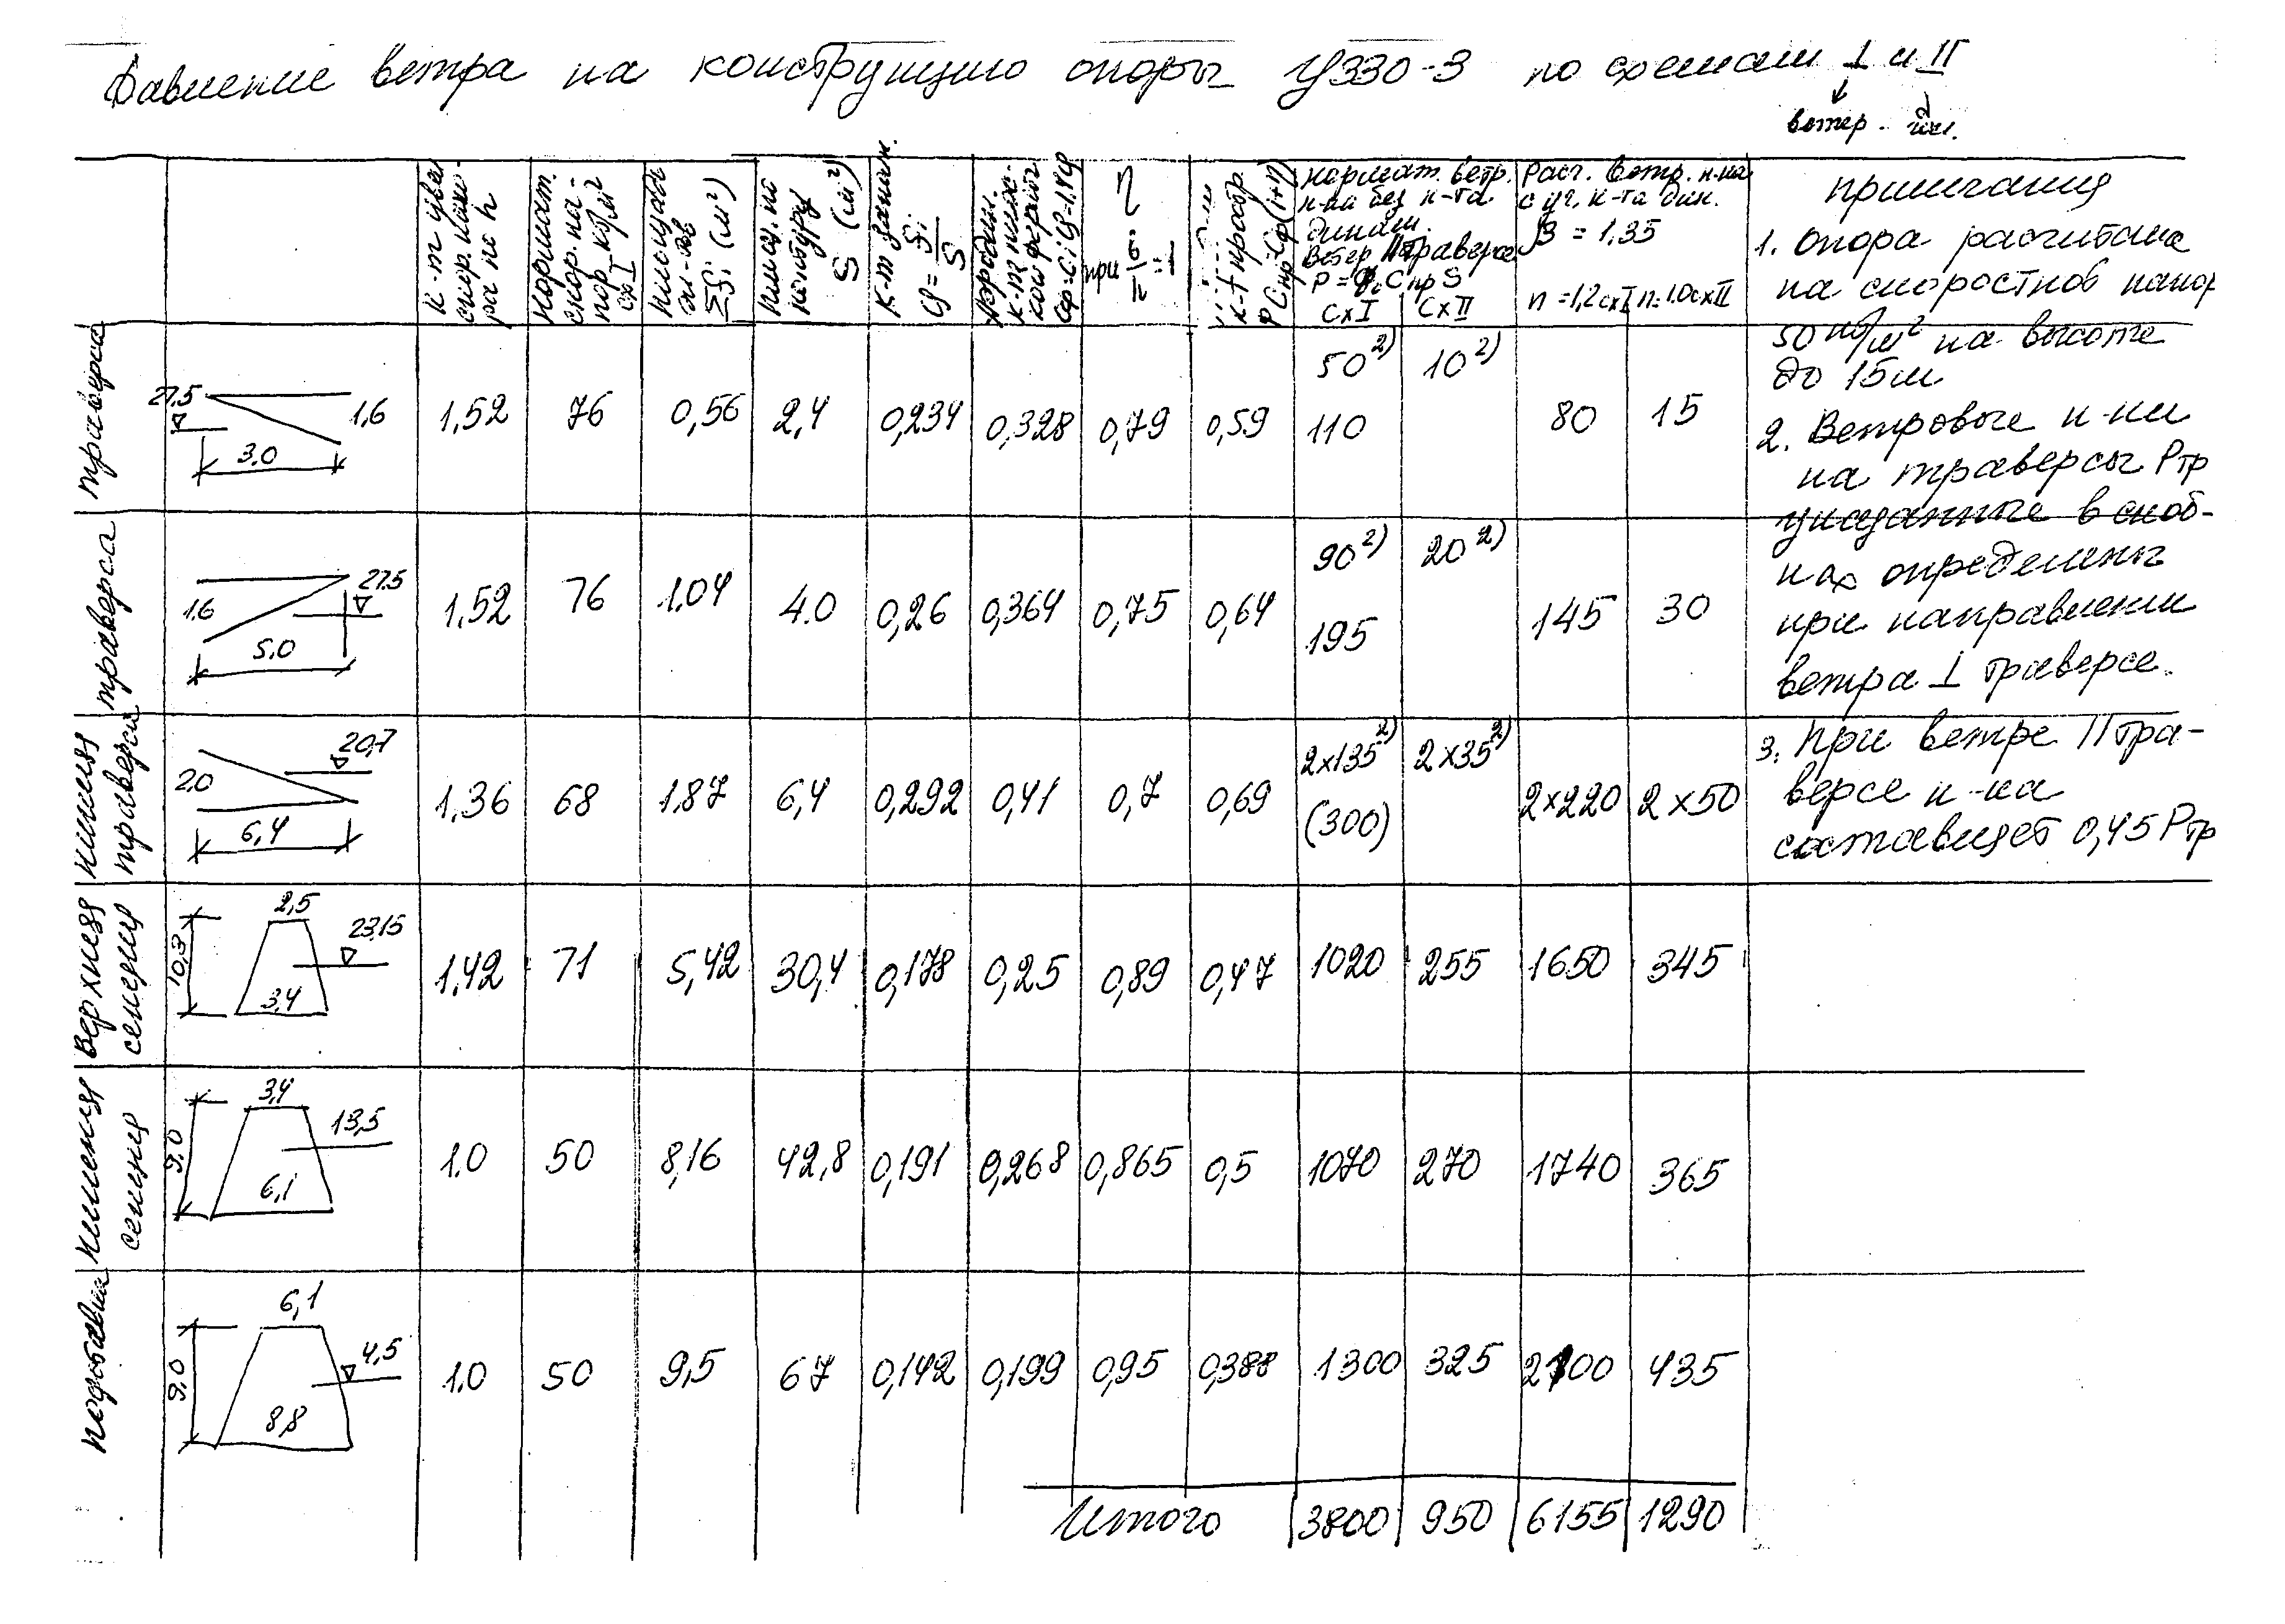 Давление ветра на конструкцию опоры У330-3 по схемам I и II
ветер.
К-т увел. скор. напора по h
Нормат. скор. напор кг/м² сх I
Площадь эл-тов ΣSi (м²)
Площ. по контуру S (м²)
К-т заполн. φ = Si/S
Аэродин. к-т плоск. конфигур Cφ=Ci φ=1.4φ
η при в/h = 1
к-т простр. р Cпр Cφ(1+η)
Нормат. ветр.
н-ка без к-та
динам.
Ветер II траверсе
P = q₀ Cпр S
Сх I
Сх II
Расч. ветр. н-ка
с уч. к-та дин.
β = 1,35
n = 1,2 сх I n = 1.0 сх II
примечания
1. Опора расчитана
на скоростной напор
50 кг/м² на высоте
до 15м
2. Ветровые н-ки
на траверсы Pтр
указанные в скоб-
ках определены
при направлении
ветра ⊥ траверсе.
3. При ветре II тра-
версе н-ка
составляет 0,45 Pтр
траверса
27.5 1,6 3.0
1,52 76 0,56 2,4 0,234 0,328 0,79 0,59 50²⁾ 110 10²⁾ 80 15
траверса
1.6 27.5 5.0
1,52 76 1.04 4.0 0,26 0,364 0,75 0,64 90²⁾ 195 20²⁾ 145 30
нижняя траверса
2.0 20,7 6,4
1,36 68 1.87 6,4 0,292 0,41 0,7 0,69 2x135²⁾ (300) 2x35²⁾ 2x220 2x50
Верхняя секция
2,5 10,3 23,15 3,4
1,42 71 5,42 30,4 0,178 0,25 0,89 0,47 1020 255 1650 345
Нижняя секция
3,4 9.0 13,5 6,1
1.0 50 8,16 42,8 0,191 0,268 0,865 0,5 1070 270 1740 365
подставка
6,1 9.0 4,5 8,8
1.0 50 9,5 67 0,142 0,199 0,95 0,388 1300 325 2100 435
Итого 3800 950 6155 1290